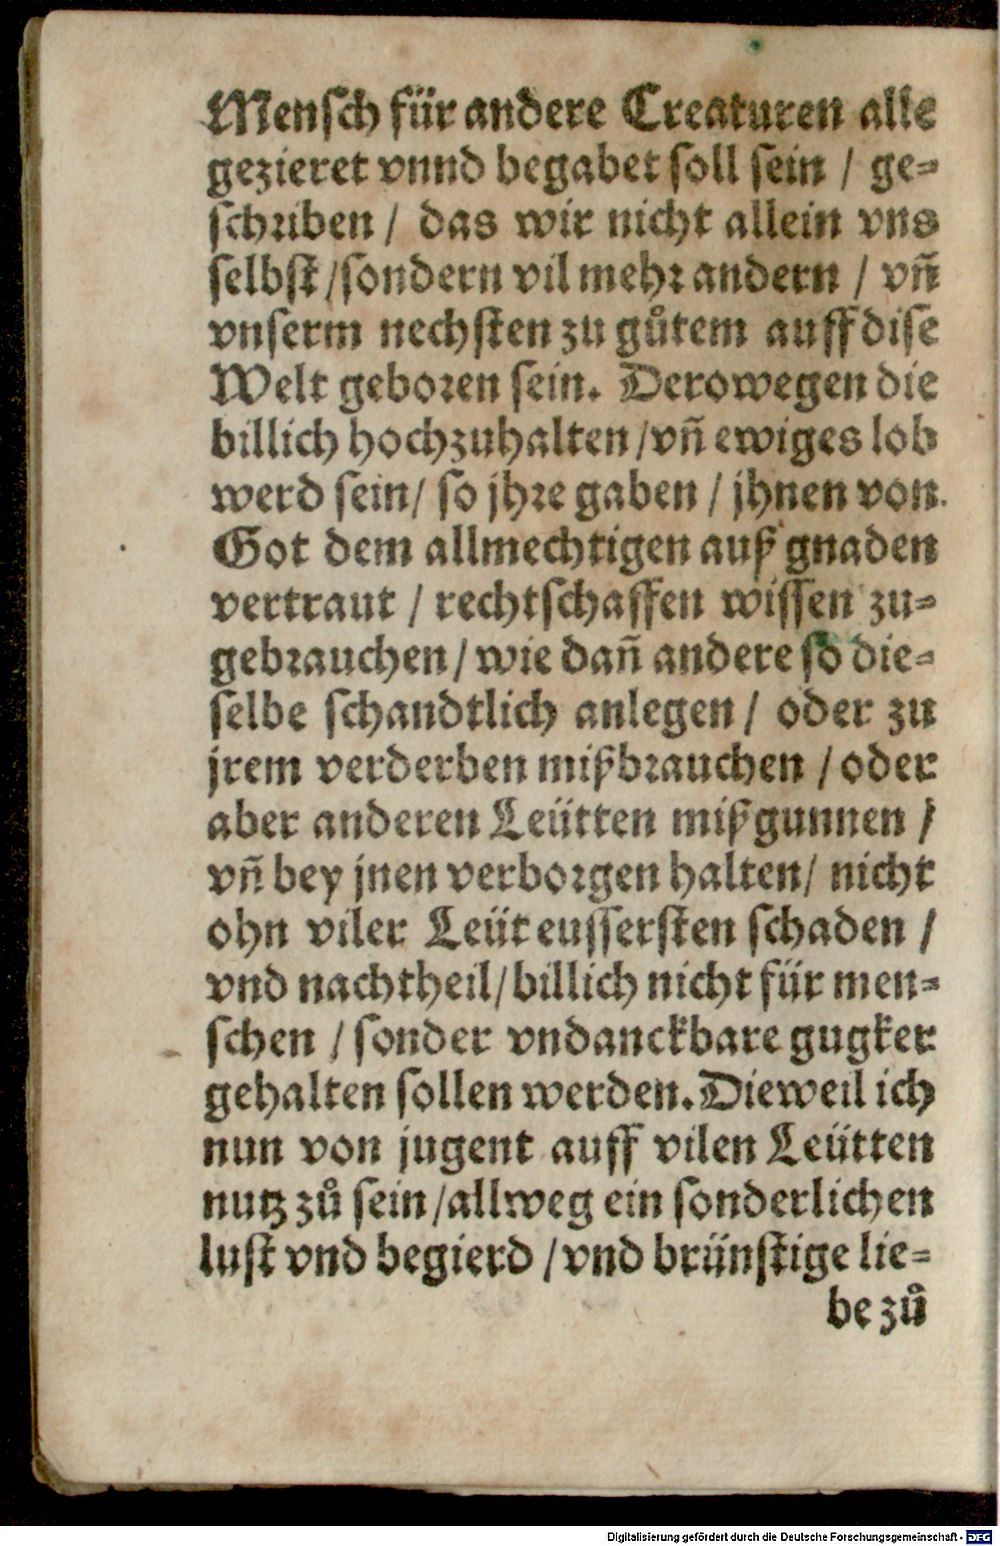 Mensch für andere Creaturen alle
gezieret vnnd begabet soll sein / ge=
schriben / das wir nicht allein vns
selbst / sondern vil mehr andern / vñ
vnserm nechsten zu gůtem auff dise
Welt geboren sein. Derowegen die
billich hochzuhalten / vñ ewiges lob
werd sein / so jhre gaben / jhnen von
Got dem allmechtigen auß gnaden
vertraut / rechtschaffen wissen zu=
gebrauchen / wie dañ andere so die=
selbe schandtlich anlegen / oder zu
jrem verderben mißbrauchen / oder
aber anderen Leütten mißgunnen /
vñ bey jnen verborgen halten / nicht
ohn viler Leüt eussersten schaden /
vnd nachtheil / billich nicht für men=
schen / sonder vndanckbare gugker
gehalten sollen werden. Dieweil ich
nun von jugent auff vilen Leütten
nutz zů sein / allweg ein sonderlichen
lust vnd begierd / vnd brünstige lie=
be zů
Digitalisierung gefördert durch die Deutsche Forschungsgemeinschaft - DFG